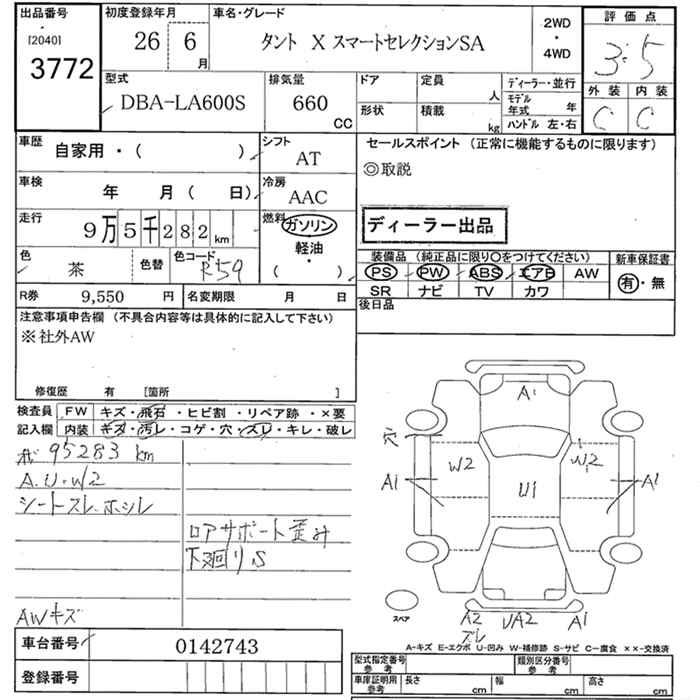 出品番号
[2040]
3772
初度登録年月
26 6
月
車名・グレード
タント X スマートセレクションSA
2WD
・
4WD
評価点
3.5
外装 内装
C C
型式
DBA-LA600S
排気量
660
CC
ドア
定員
人
形状
積載
kg
ディーラー・並行
モデル年式 年
ハンドル 左・右
車歴
自家用・( )
シフト
AT
車検
年 月( 日)
冷房
AAC
走行
9万5千282km
燃料
ガソリン
軽油
・
( )
色
茶
色替
色コード
R59
R券
9,550 円
名変期限 月 日
セールスポイント (正常に機能するものに限ります)
◎取説
ディーラー出品
装備品 (純正品に限り○をつけてください)
PS PW ABS エアB AW
SR ナビ TV カワ
新車保証書
有・無
後日品
注意事項申告欄 (不具合内容等は具体的に記入して下さい)
※社外AW
修復歴 有 [箇所 ]
検査員記入欄
FW キズ・飛石・ヒビ割・リペア跡・×要
内装 キズ・汚レ・コゲ・穴・スレ・キレ・破レ
95283 km
A.U.W2
シートスレ.ホシレ
ロアサポート歪み
下廻りS
AWキズ
A1
穴
W2
W2
A1
U1
A1
スペア
A2
ズレ
UA2
A1
A-キズ E-エクボ U-凹み W-補修跡 S-サビ C-腐食 ××-交換済
車台番号
0142743
登録番号
型式指定番号
参考
類別区分番号
参考
車庫証明用
参考
長さ cm
幅 cm
高さ cm